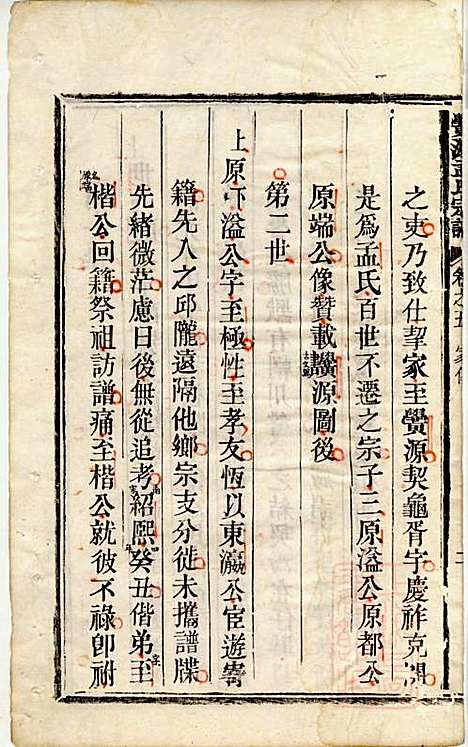 黌源孟氏宗譜 卷之五 家傳
之吏乃致仕挈家至黌源契龜胥宇慶祚克開
是爲孟氏百世不遷之宗子三原溢公原都公
原端公像贊載黌源圖後
第二世
上原下溢公字至極性至孝友恆以東瀛公宦遊寄
籍先人之邱隴遠隔他鄉宗支分徙未攜譜牒
先緒微茫慮日後無從追考紹熙癸丑偕弟至
楷公回籍祭祖訪譜痛至楷公就彼不祿卽祔